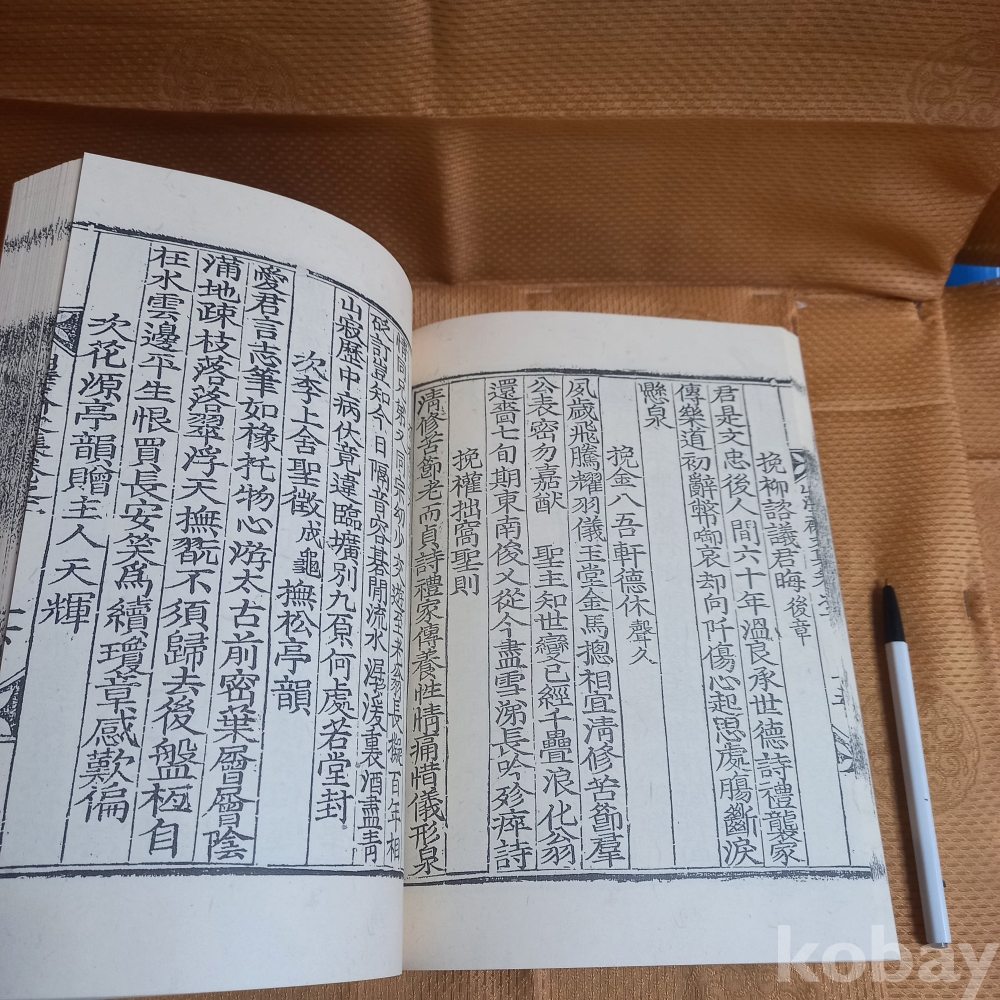 挽柳諮議君晦後章
君是文忠後人間六十年溫良承世德詩禮襲家
傳樂道初辭幣啣哀却向阡傷心起思處腸斷淚
懸泉
挽金八吾軒德休聲久
夙歲飛騰耀羽儀玉堂金馬摠相宜淸修苦節羣
公表密勿嘉猷 聖主知世變已經千疊浪化翁
還嗇七旬期東南俊乂從今盡雪涕長吟殄瘁詩
挽權拙窩聖則
淸修苦節老而貞詩禮家傳養性情痛惜儀形泉
山寂歷中病伏竟違臨壙別九原何處若堂封
次李上舍聖徵成龜撫松亭韻
愛君言志筆如椽托物心游太古前密葉層層陰
滿地疎枝落落翠浮天撫翫不須歸去後盤桓自
在水雲邊平生恨買長安笑爲續瓊章感歎徧
次花源亭韻贈主人天輝
kobay